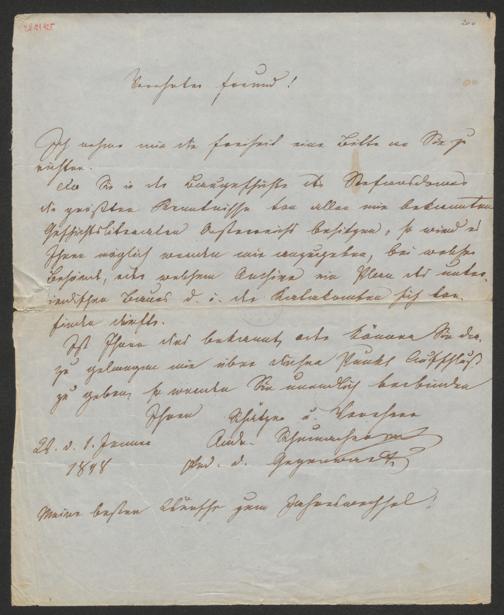 Verehrter Freund!
Ich nehme mir die Freiheit eine Bitte an Sie zu
richten.
Da Sie in der Baugeschichte des Stefansdomes
die größten Kenntnisse von allen mir bekannten
Geschichtsliteraten Oesterreichs besitzen, so wird es
Ihnen möglich werden mir anzugeben, bei welcher
Behörde, oder welchem Archive ein Plan des unter-
irdischen Baues d. i. der Katakomben sich vor-
finden dürfte.
Ist Ihnen dies bekannt, oder können Sie da-
zu gelangen mir über diesen Punkt Aufschluß
zu geben, so werden Sie unendlich verbinden
Ihren Schätzer u. Verehrer
W. d. 1. Jänner And. Schumacher
1848 Red. d. Gegenwart
Meine besten Wünsche zum Jahreswechsel!